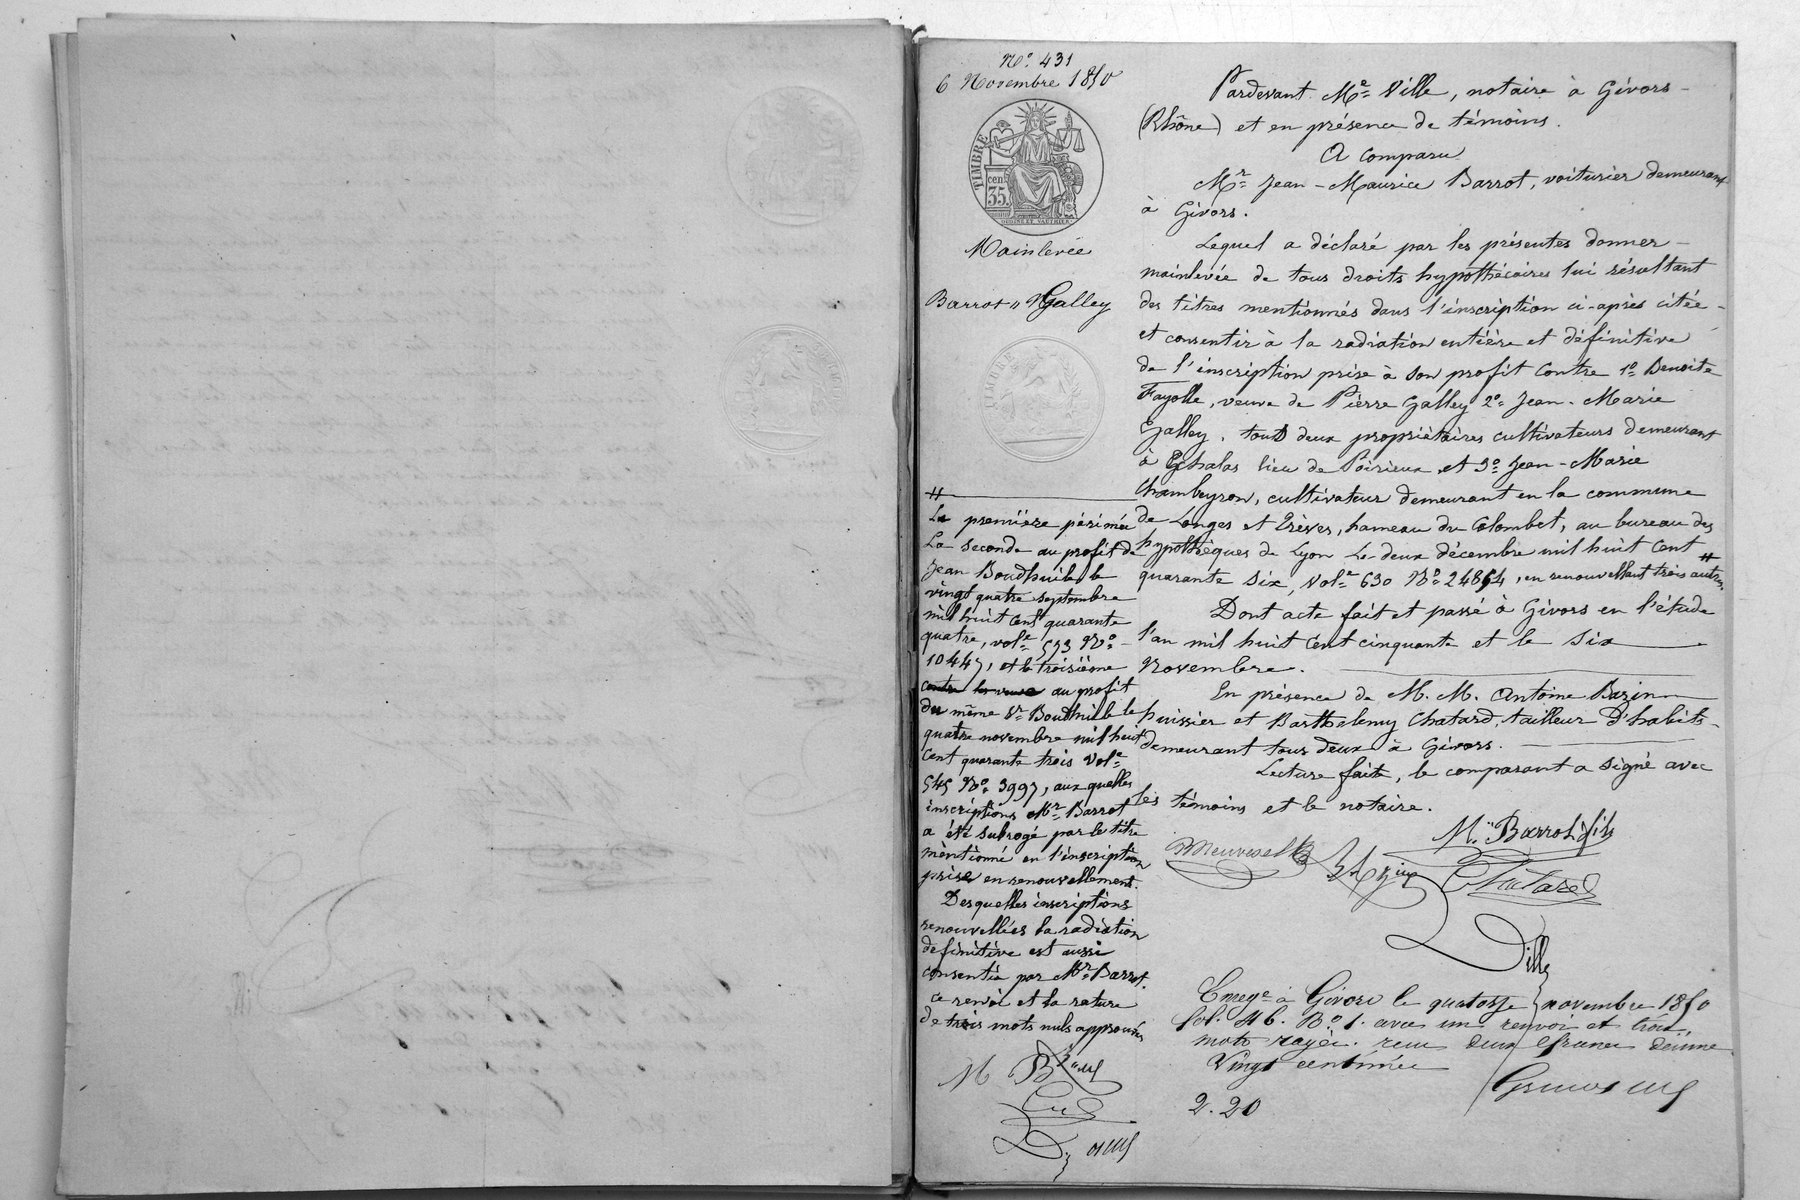 N° 431
6 Novembre 1850
TIMBRE
cen.
35.
Mainlevée
Barrot à Galley
TIMBRE
Pardevant Me Ville, notaire à Givors
(Rhône) et en présence de témoins.
A comparu
Mr Jean-Maurice Barrot, voiturier demeurant
à Givors.
Lequel a déclaré par les présentes donner
mainlevée de tous droits hypothécaires lui résultant
des titres mentionnés dans l'inscription ci-après citée
et consentir à la radiation entière et définitive
de l'inscription prise à son profit contre 1° Benoite
Fayolle, veuve de Pierre Galley 2° Jean-Marie
Galley, tous deux propriétaires cultivateurs demeurant
à Echalas lieu de Poirieux et 3° Jean-Marie
Chambeyron, cultivateur demeurant en la commune
de Longes et Trèves, hameau du Colombet, au bureau des
hypothèques de Lyon le deux décembre mil huit cent
quarante six, vole 630 N° 24854, en renouvellant trois autres #
Dont acte fait et passé à Givors en l'étude
l'an mil huit cent cinquante et le six
novembre.
En présence de M. M. Antoine Bazin
huissier et Barthelemy Chatard, tailleur d'habits
demeurant tous deux à Givors.
Lecture faite, le comparant a signé avec
les témoins et le notaire.
#
La première périmée
La seconde au profit de
Jean Boudhuile le
vingt quatre septembre
mil huit cent quarante
quatre, vole 573 N°
10447, et la troisième
contre la veuve au profit
du même Sr Boudhuile le
quatre novembre mil huit
cent quarante trois vole
545 N° 3997, aux quelles
inscriptions Mr Barrot
a été subrogé par le titre
mentionné en l'inscription
prise en renouvellement.
Desquelles inscriptions
renouvellées la radiation
définitive est aussi
consentie par Mr Barrot.
ce renvoi et la rature
de trois mots nuls approuvés
M. Barrot fils
Bazin
Chatard
Ville
M B
Enregé à Givors le quatorze novembre 1850
fol. 46. Bo 1. avec un renvoi et trois
mots rayés. reçu deux francs dixième
vingt centimes
2.20